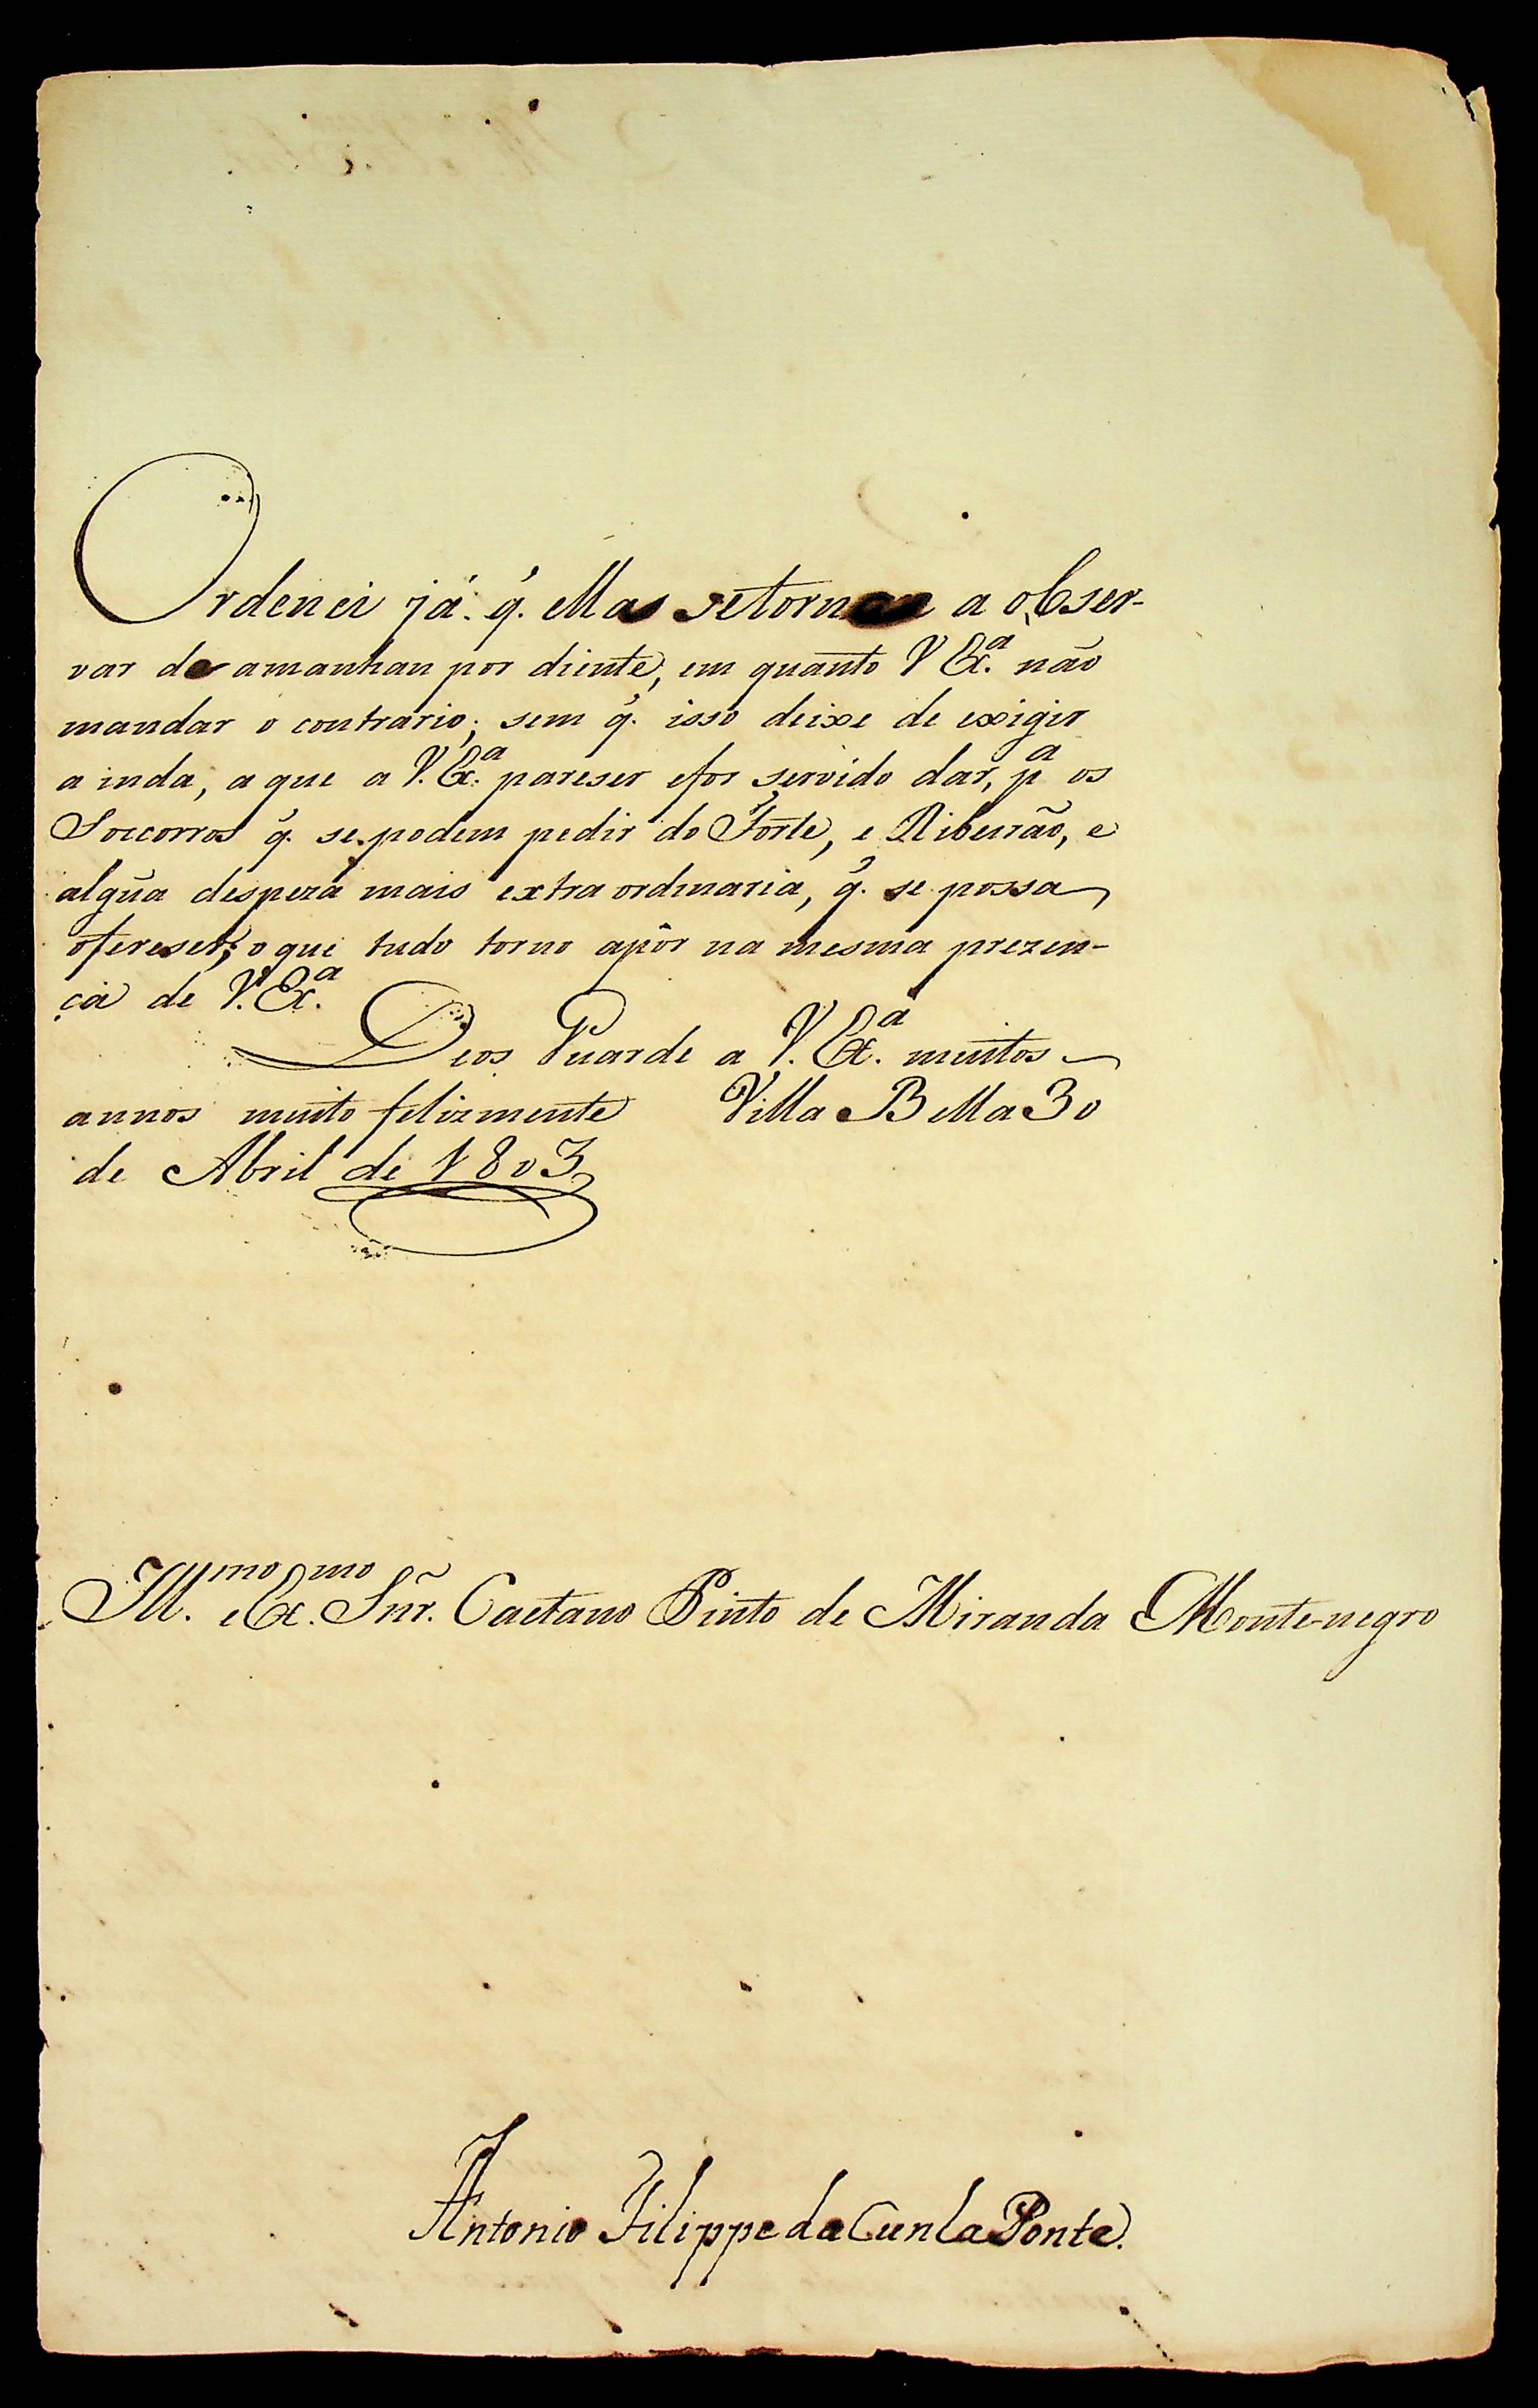 Ordenei já. q̃. ellas setornem a obser-
var de amanhan por diente, em quanto V Ex.ª não
mandar o contrario; sem q̃. isso deixe de exigir
a inda, a que a V. Ex.ª pareser efor servido dar, pª os
Soccorros q̃. se podem pedir do Forte, e Ribeirão, e
algũa despeza mais extra ordinaria, q̃. se possa
ofereser; o que tudo torno apôr na mesma prezen-
ça de V. Ex.ª
Deos Guarde a V. Ex.ª muitos
annos muito felizmente Villa Bella 30
de Abril de 1803
Ill.mo e Ex.mo Snr̃. Caetano Pinto de Miranda Montenegro
Antonio Filippe da Cunha Ponte.